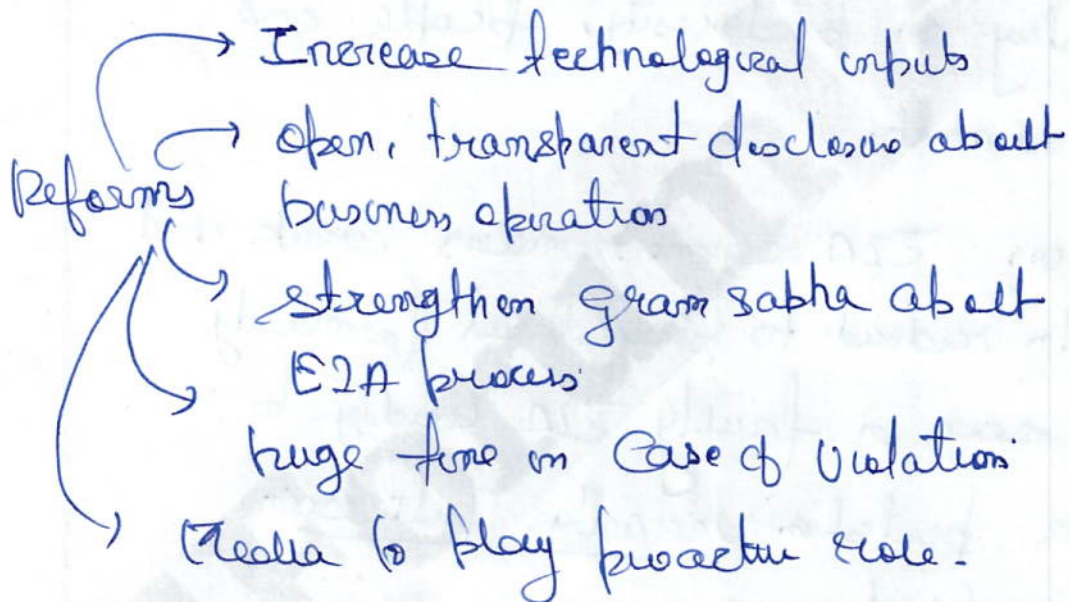 Increase technological inputs
open, transparent disclosure about
Reforms business operation
strengthen gram sabha about
EIA process
huge fine in case of violation
Media to play proactive role.